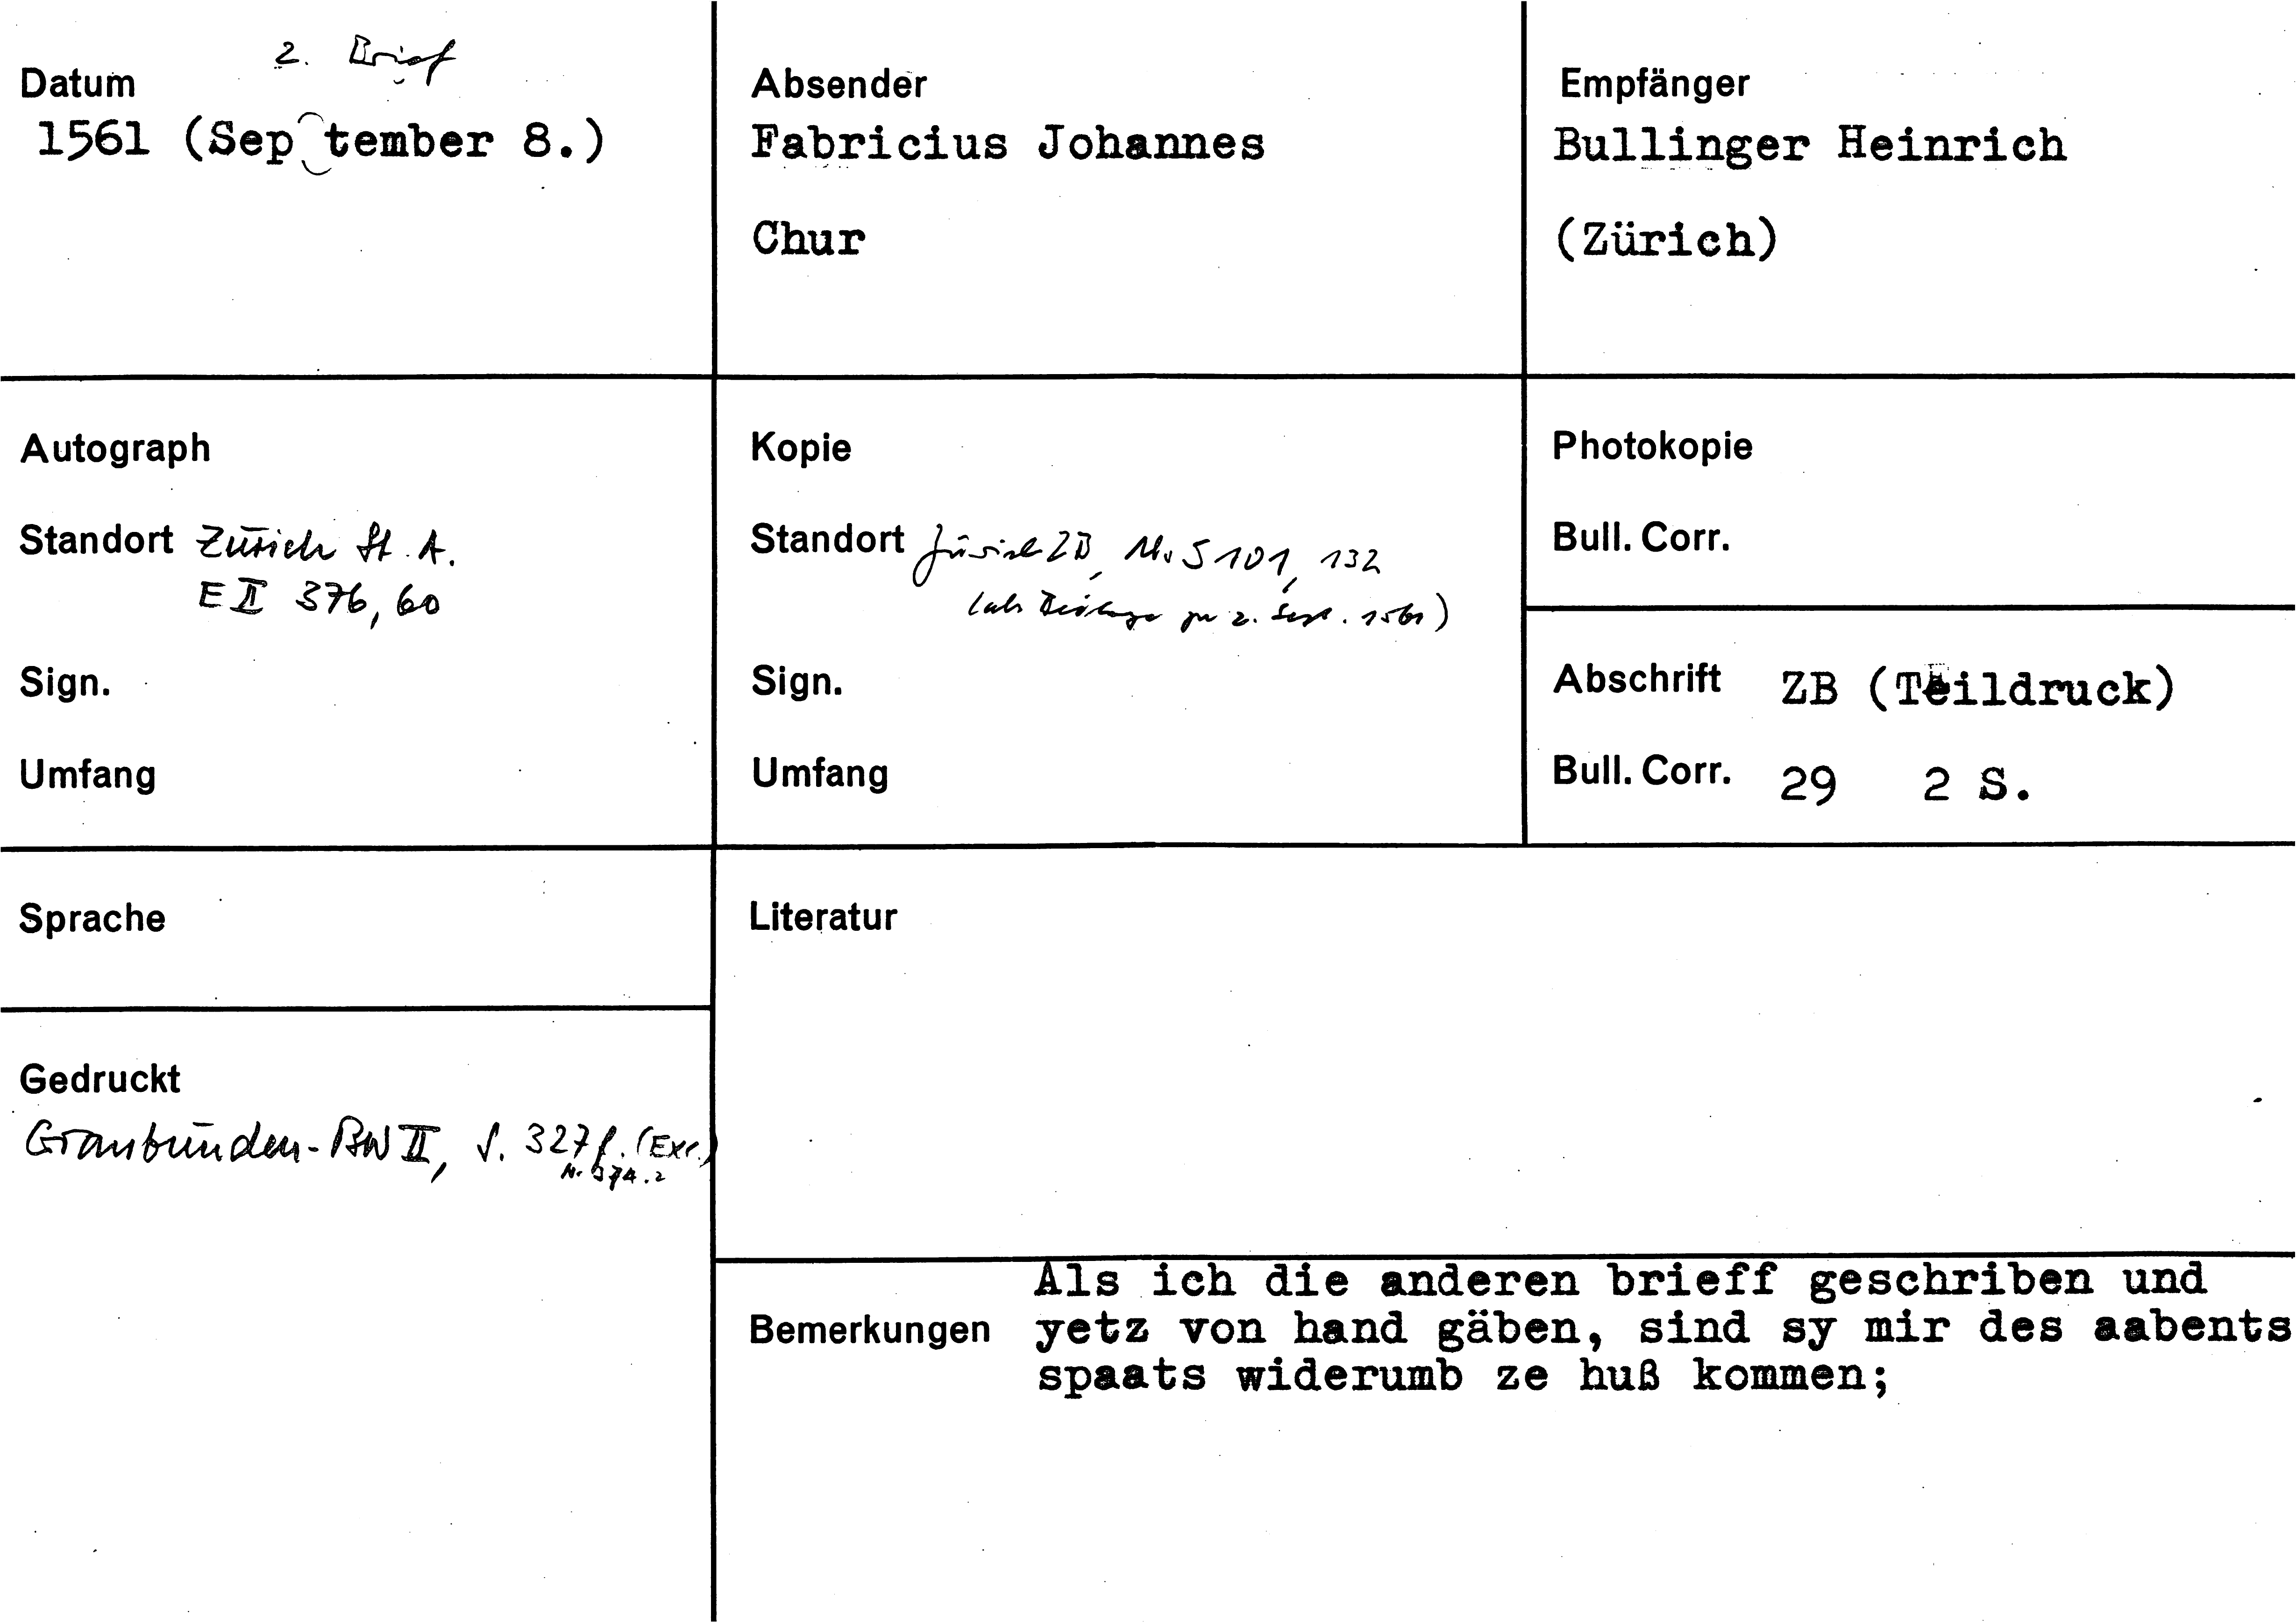 2. Brief
Datum
1561 (September 8.)
Absender
Fabricius Johannes
Chur
Empfänger
Bullinger Heinrich
(Zürich)
Autograph
Standort Zürich St.A.
E II 376, 60
Sign.
Umfang
Kopie
Standort Zürich ZB, Ms S 101, 132
(als Beilage zu 2. Sept. 1561)
Sign.
Umfang
Photokopie
Bull. Corr.
Abschrift ZB (Teildruck)
Bull. Corr. 29 2 S.
Sprache
Literatur
Gedruckt
Graubünden-BW II, S. 327f. (Exc.)
Nr. 374.2
Als ich die anderen brieff geschriben und
Bemerkungen yetz von hand gäben, sind sy mir des aabents
spaats widerumb ze huß kommen;